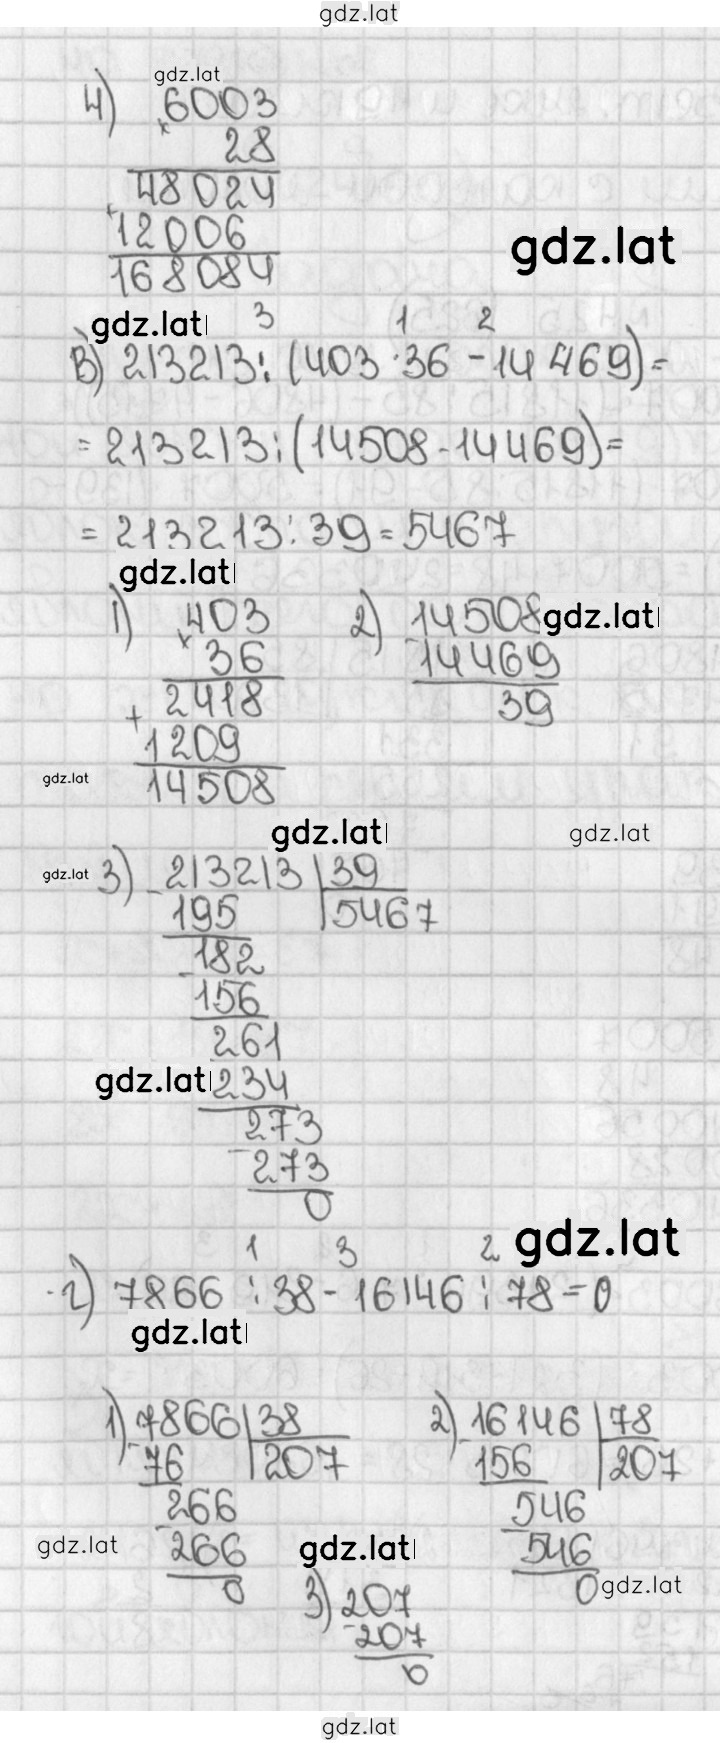 gdz.lat
gdz.lat
4) 6003
× 28
48024
+ 12006
168084
gdz.lat
gdz.lat
3 1 2
в) 213213:(403·36-14469)=
=213213:(14508-14469)=
=213213:39=5467
gdz.lat
1) 403
× 36
2418
+ 1209
14508
2) 14508
- 14469
39
gdz.lat
gdz.lat
gdz.lat
gdz.lat
gdz.lat
3) 213213 | 39
- 195 | 5467
182
- 156
261
234
273
- 273
0
gdz.lat
gdz.lat
1 3 2
г) 7866:38-16146:78=0
gdz.lat
1) 7866 | 38
- 76 | 207
266
- 266
0
2) 16146 | 78
- 156 | 207
546
- 546
0
gdz.lat
gdz.lat
gdz.lat
3) 207
- 207
0
gdz.lat